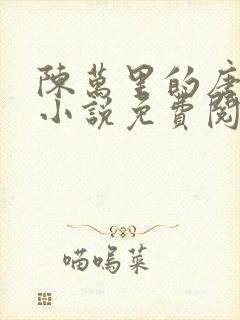 陳萬里的唐
小說免費閱
喵嗚菜